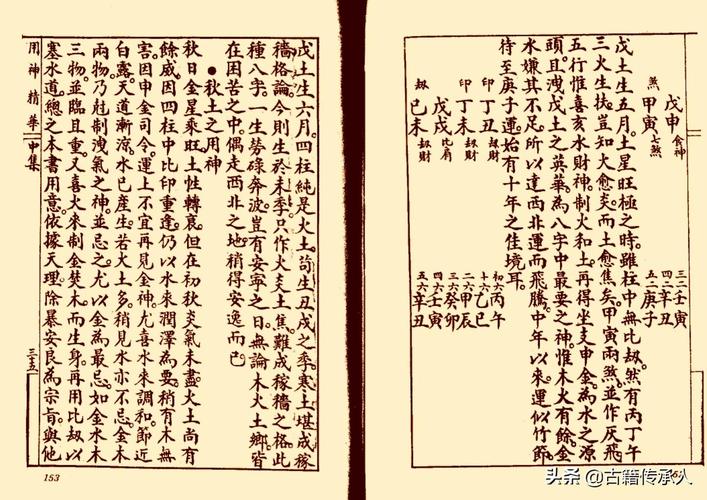 戊申 食神
煞 甲寅 七煞
三二 壬寅
四二 辛丑
五二 庚子
戊土生五月。土星旺極之時。雖柱中無比劫。然有丙丁午
三火生扶。豈知火愈炎而土愈焦矣。甲寅兩煞。並作灰飛
五行惟喜亥水財神。制火和土。再得坐支申金。為水之源
頭。且洩戊土之英華。為八字中最要之神。惟木火有餘。金
水嫌其不足。所以達西北運而飛騰。中年以來。運似竹節
待至庚子運。始有十年之佳境耳。
印 丁丑 劫財
印 丁未 劫財
戊戌 比肩
劫 己未 劫財
初六 丙午
十六 乙巳
二六 甲辰
三六 癸卯
四六 壬寅
五六 辛丑
戊土生六月。四柱純是火土。苟生丑戌之季。寒土堪成稼
穡格論。今則生於未季。只作火炎土焦。難成稼穡之格。此
種八字。一生勞碌奔波。豈有安寧之日。無論木火土鄉。皆
在困苦之中。偶走西北之地。稍得安逸而已
●秋土之用神
秋日金星乘旺。土性轉衰。但在初秋炎氣未盡。火土尚有
餘威。因四柱中比印重逢。仍以水來潤澤為要。稍有木無
害。因申金司令。運上不宜再見金神。尤喜水來調和。節近
白露。天道漸涼。水已產生。若火土多。稍見水亦不忌。金木
兩物。乃尅制洩氣之神。並忌之。尤以金為最忌。如金水木
三物並臨且重。又喜火來制金焚木而生身。再用比劫以
塞水道。總之本書用意。依據天理。除暴安良為宗旨。與他
用神精華 中集 三五
153
头条 @古籍传承人